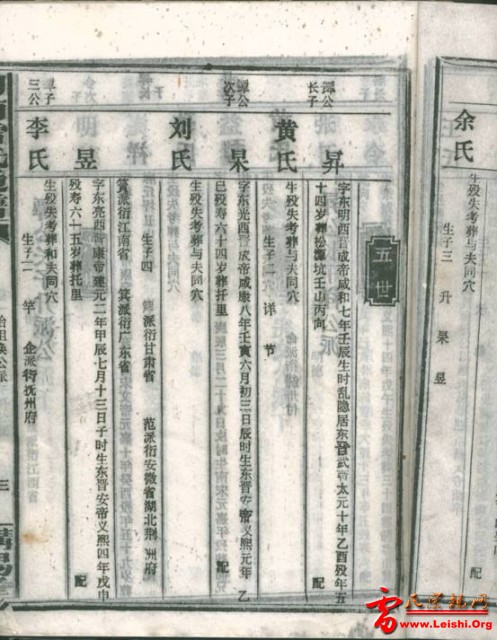 余氏
生殁失考葬与夫同穴
生子三 升 杲 昱
五世
譚公长子
昇
字东明西晋成帝咸和七年壬辰生时乱隐居东晋武帝太元十年乙酉殁年五十四岁葬松潭坑壬山丙向 配
黄氏
生殁失考葬与夫同穴
生子二 详 节
譚公次子
杲
字东光西晋成帝咸康八年壬寅六月初三日辰时生东晋安帝义熙元年乙巳殁寿六十四岁葬托里 配
刘氏
生殁失考葬与夫同穴
生子四
派衍甘肃省
范派衍安微省湖北荆洲府
箕派衍江南省
箕派衍广东省
譚公三子
昱
字东亮西晋康帝建元二年甲辰七月十三日子时生东晋安帝义熙四年戊申殁寿六十五岁葬托里 配
李氏
生殁失考葬和夫同穴
生子二 竿 企派衍抚州府
三
雷氏宗亲网
www.Leishi.Org